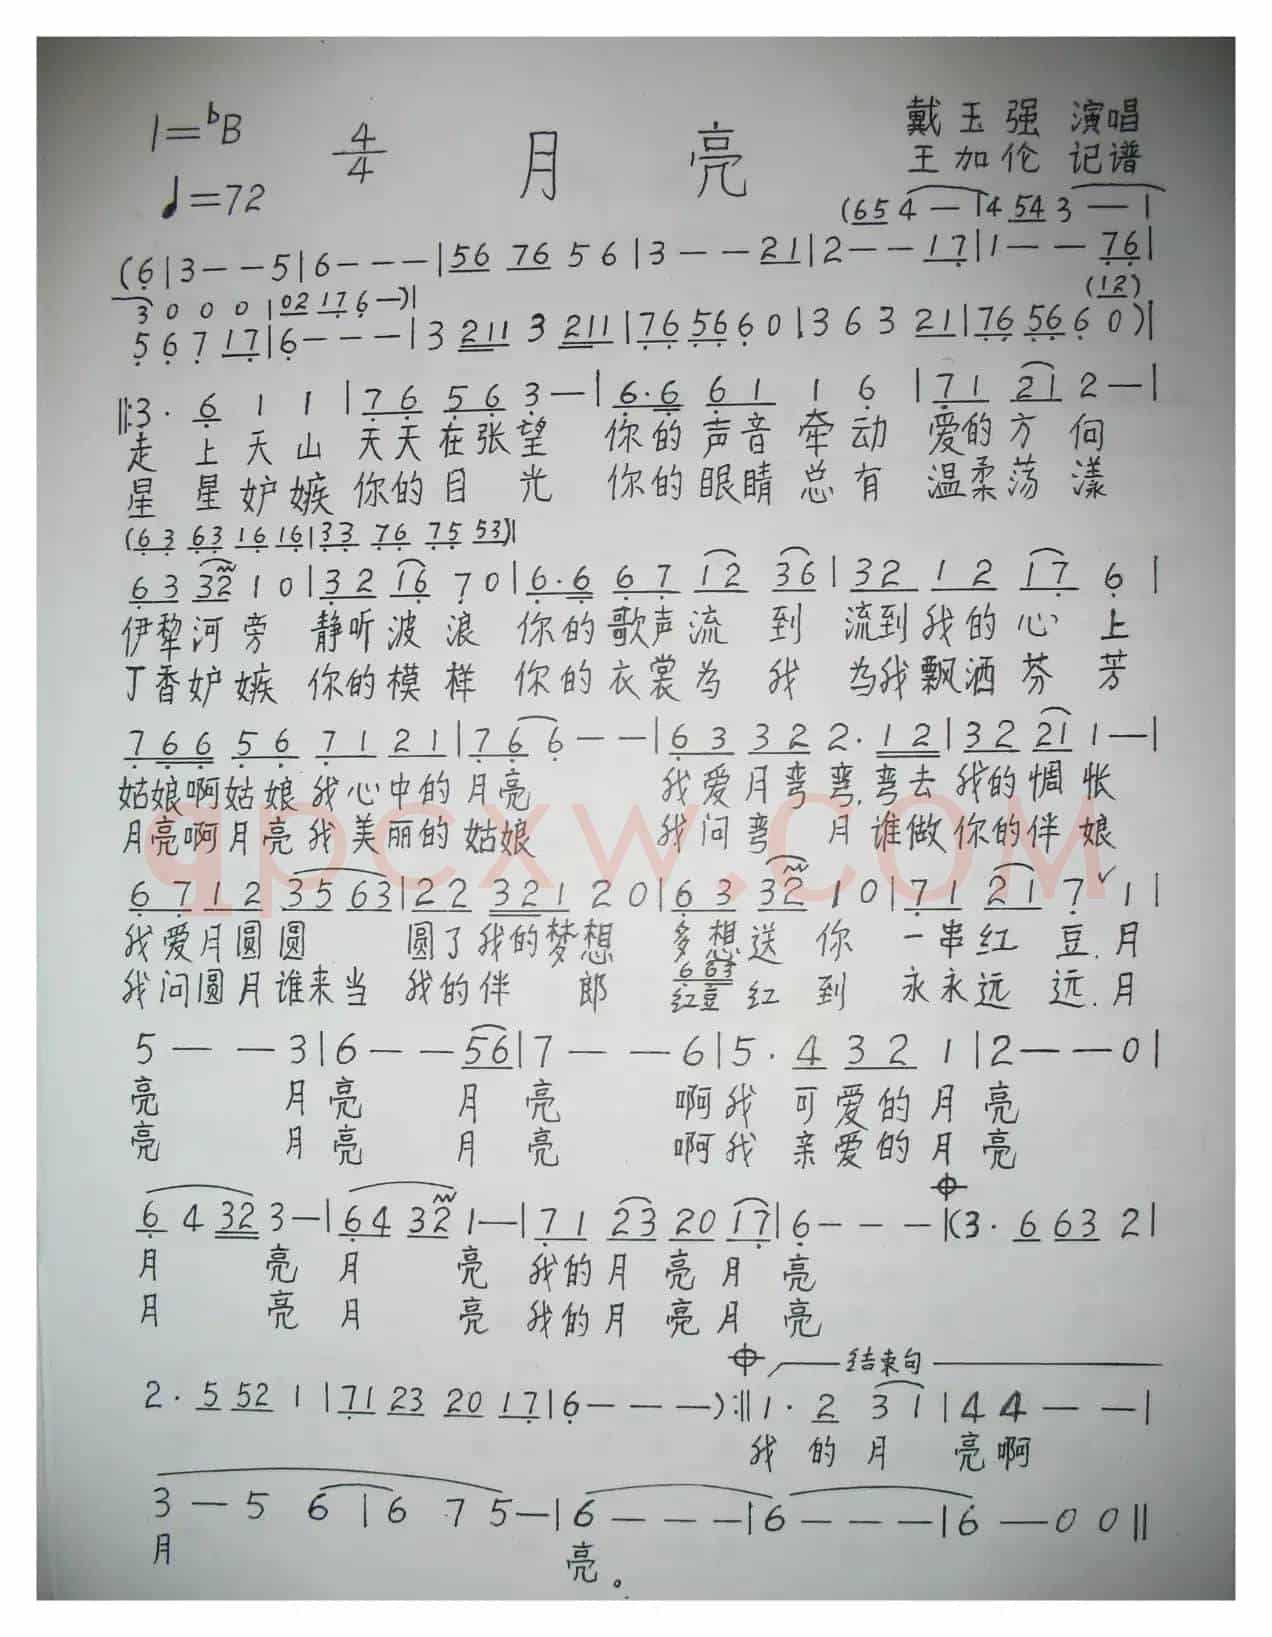 1=♭B 4/4 月 亮 戴玉强 演唱
♩=72 王加伦 记谱
(65 4 — | 4 54 3 — — |
(6 | 3 - - 5 | 6 - - - | 56 76 5 6 | 3 - - 21 | 2 - - 17 | 1 - - 76 |
3 0 0 0 | 02 17 6 —) | (12)
5 6 7 17 | 6 - - - | 3 211 3 211 | 76 56 6 0 | 3 6 3 21 | 76 56 6 0 ) |
‖: 3 · 6 1 1 | 76 56 3 — | 6·6 61 1 6 | 71 21 2 — |
走 上 天 山 天天在张望 你的声音牵动 爱的方向
星 星 妒嫉 你的目 光 你的眼睛总有 温柔荡漾
(63 63 16 16 | 33 76 75 53) |
63 32 1 0 | 32 16 7 0 | 6·6 67 12 36 | 32 12 17 6 |
伊犁河旁 静听波浪 你的歌声流 到 流到我的心 上
丁香妒嫉 你的模样 你的衣裳为 我 为我飘洒芬 芳
766 56 71 21 | 76 6 - - | 63 32 2· 12 | 32 21 1 — |
姑娘啊姑娘我心中的月亮 我爱月弯弯,弯去我的惆怅
月亮啊月亮我美丽的姑娘 我问弯 月谁做你的伴娘
67 12 35 63 | 22 321 2 0 | 63 32 1 0 | 71 21 7 ˇ 1 |
我爱月圆圆 圆了我的梦想 多想送 你 一串红 豆,月
6 63
我问圆月谁来当 我的伴 郎 红豆红 到 永永远 远,月
5 — — 3 | 6 - - 56 | 7 — — 6 | 5 · 4 32 1 | 2 — — 0 |
亮 月 亮 月 亮 啊我 可爱的月亮
亮 月 亮 月 亮 啊我 亲爱的月亮
6 4 32 3 — | 64 32 1 — | 71 23 20 17 | 6 - - - | (3· 6 63 2 |
月 亮 月 亮 我的月 亮月 亮
月 亮 月 亮 我的月 亮月 亮
结束句
2 · 5 52 1 | 71 23 20 17 | 6 - - - ) :‖ 1 · 2 3 1 | 4 4 - - - |
我 的 月 亮啊
3 — 5 6 | 6 7 5 — | 6 - - - | 6 - - - | 6 — 0 0 ‖
月 亮。
qpcxw.com